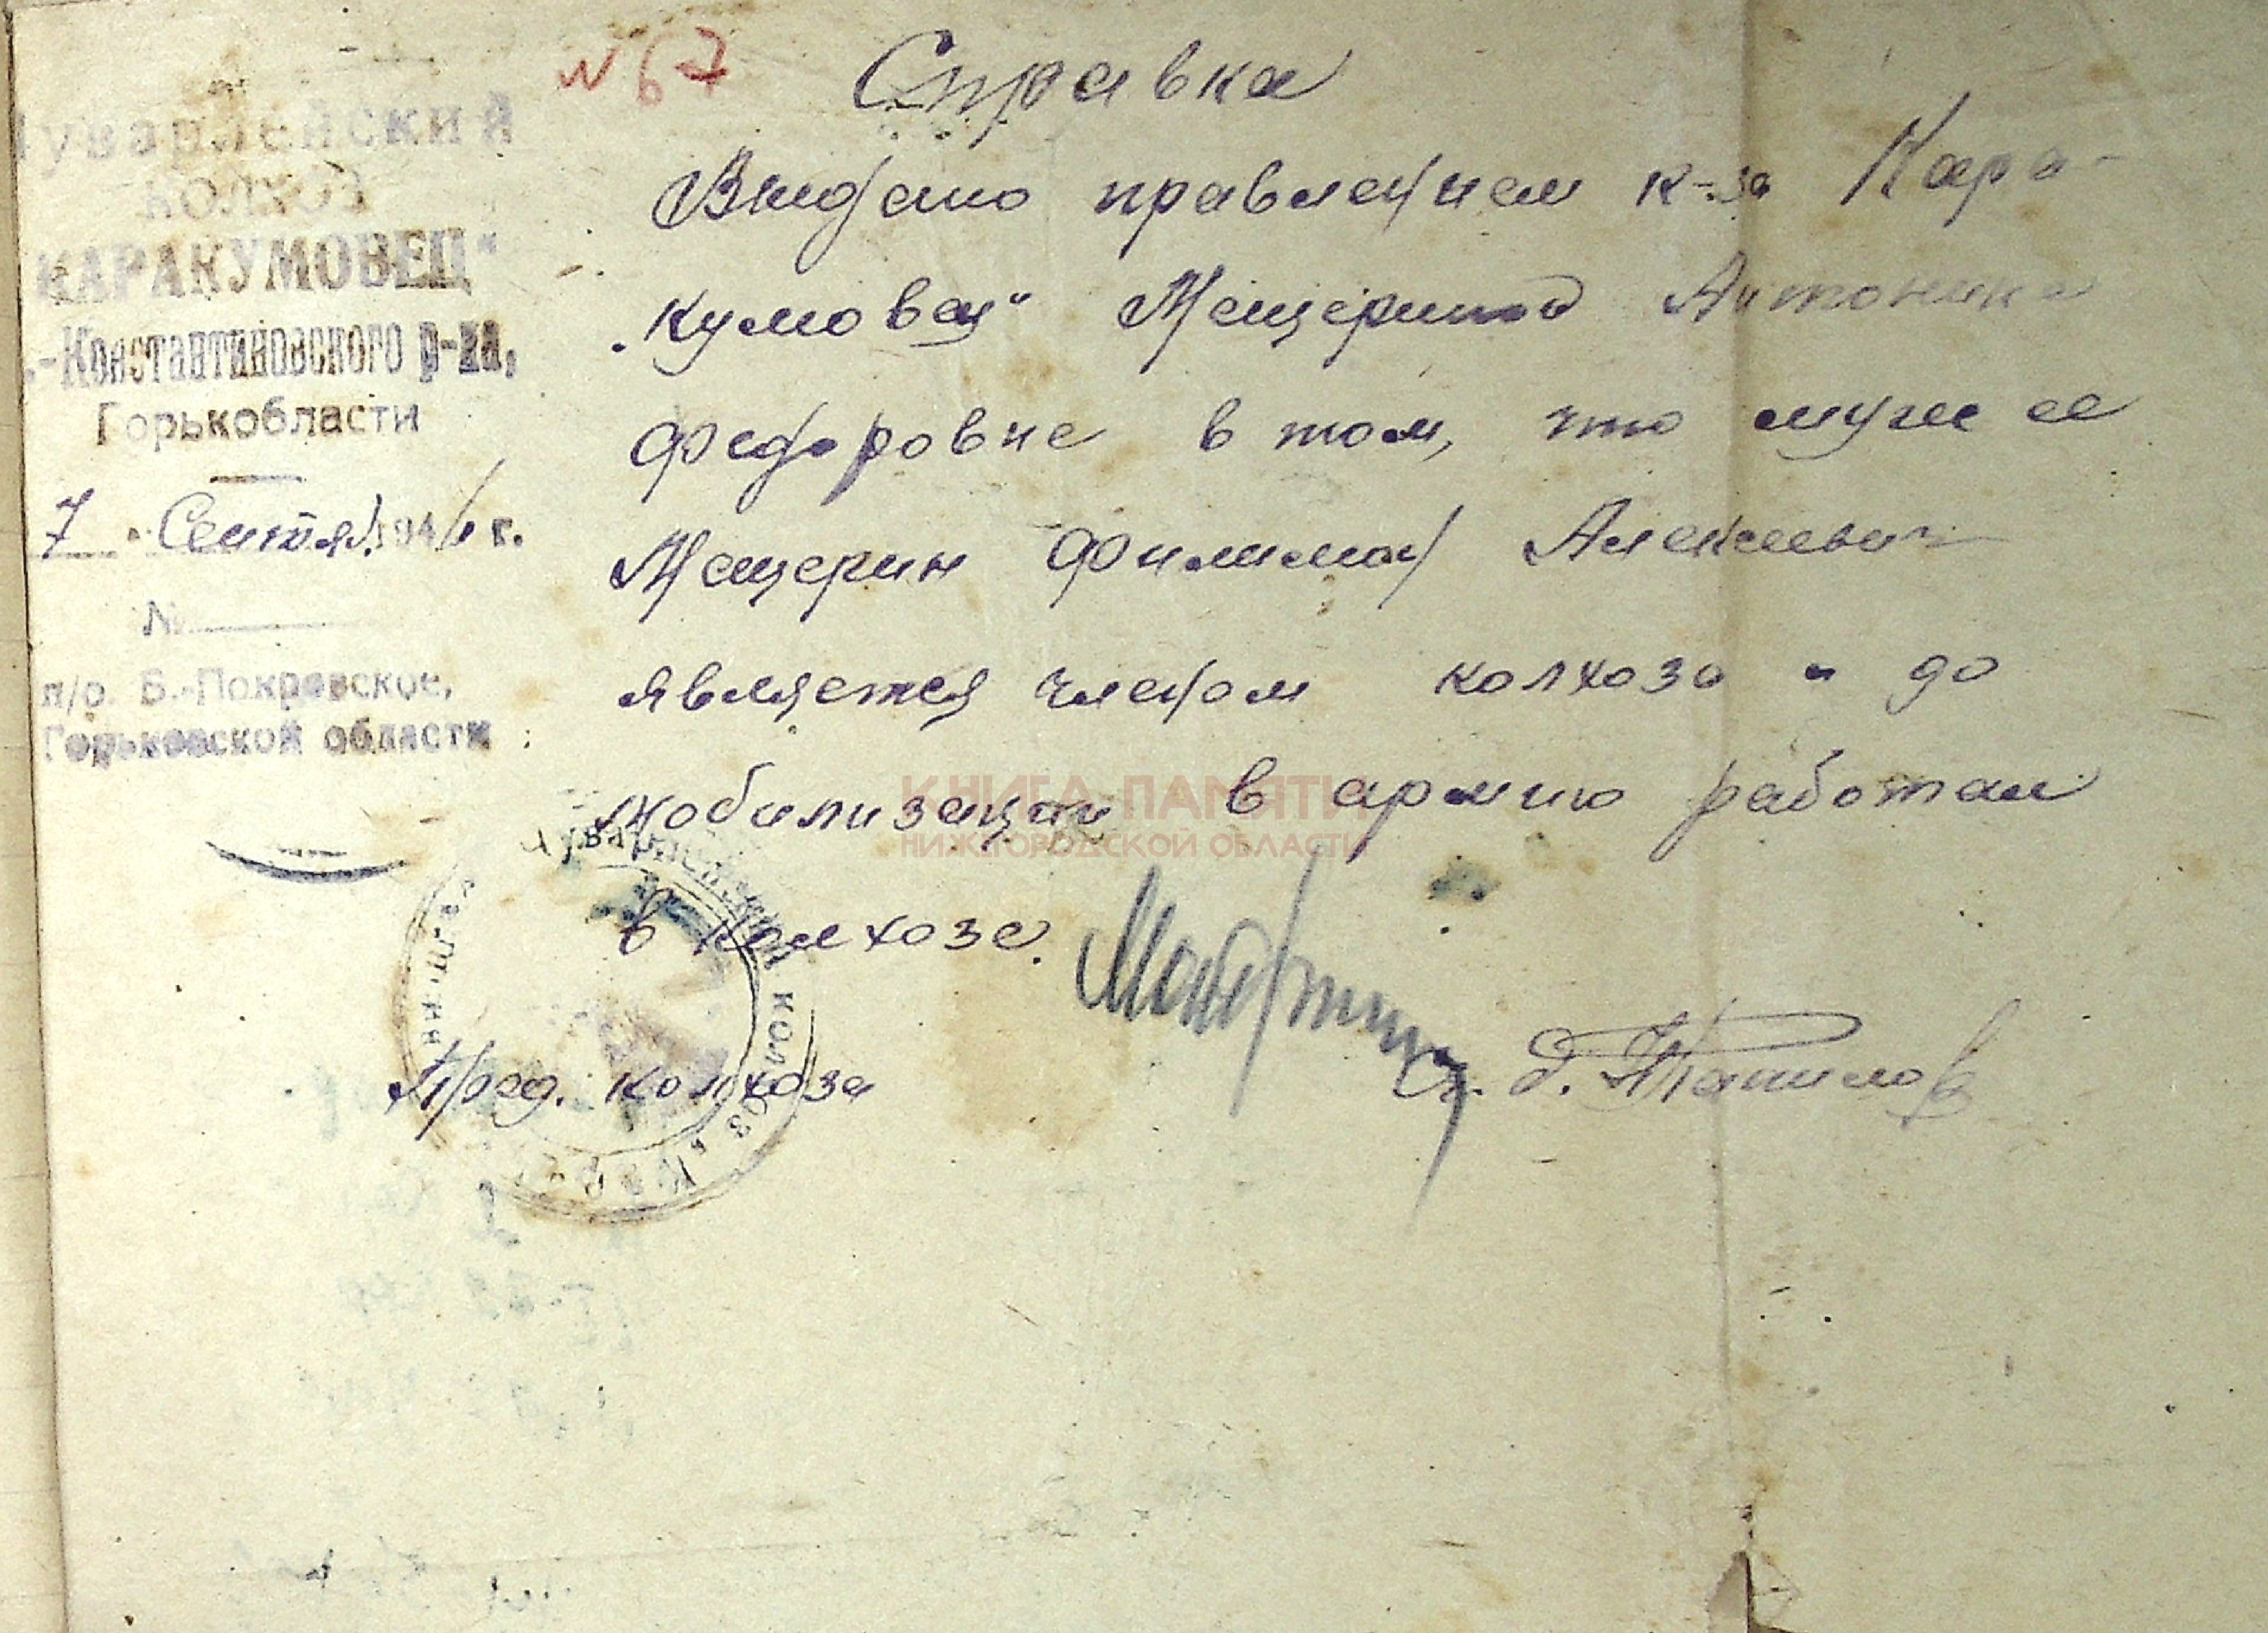 № 67
Справка
Чуварлейский
КОЛХОЗ
„КАРАКУМОВЕЦ“
.-Константиновского р-на,
Горькобласти
7 Сентяб. 194 г.
№
п/о. Б.-Покровское,
Горьковской области
Выдано правлением к-за Кара-
„кумовец“ Мещериной Антонине
Федоровне в том, что муж ее
Мещерин Филимон Алексеевич
является членом колхоза и до
мобилизации в армию работал
в колхозе.
Пред. колхоза
Чуварлейский колхоз „Кара
КНИГА ПАМЯТИ
НИЖЕГОРОДСКОЙ ОБЛАСТИ